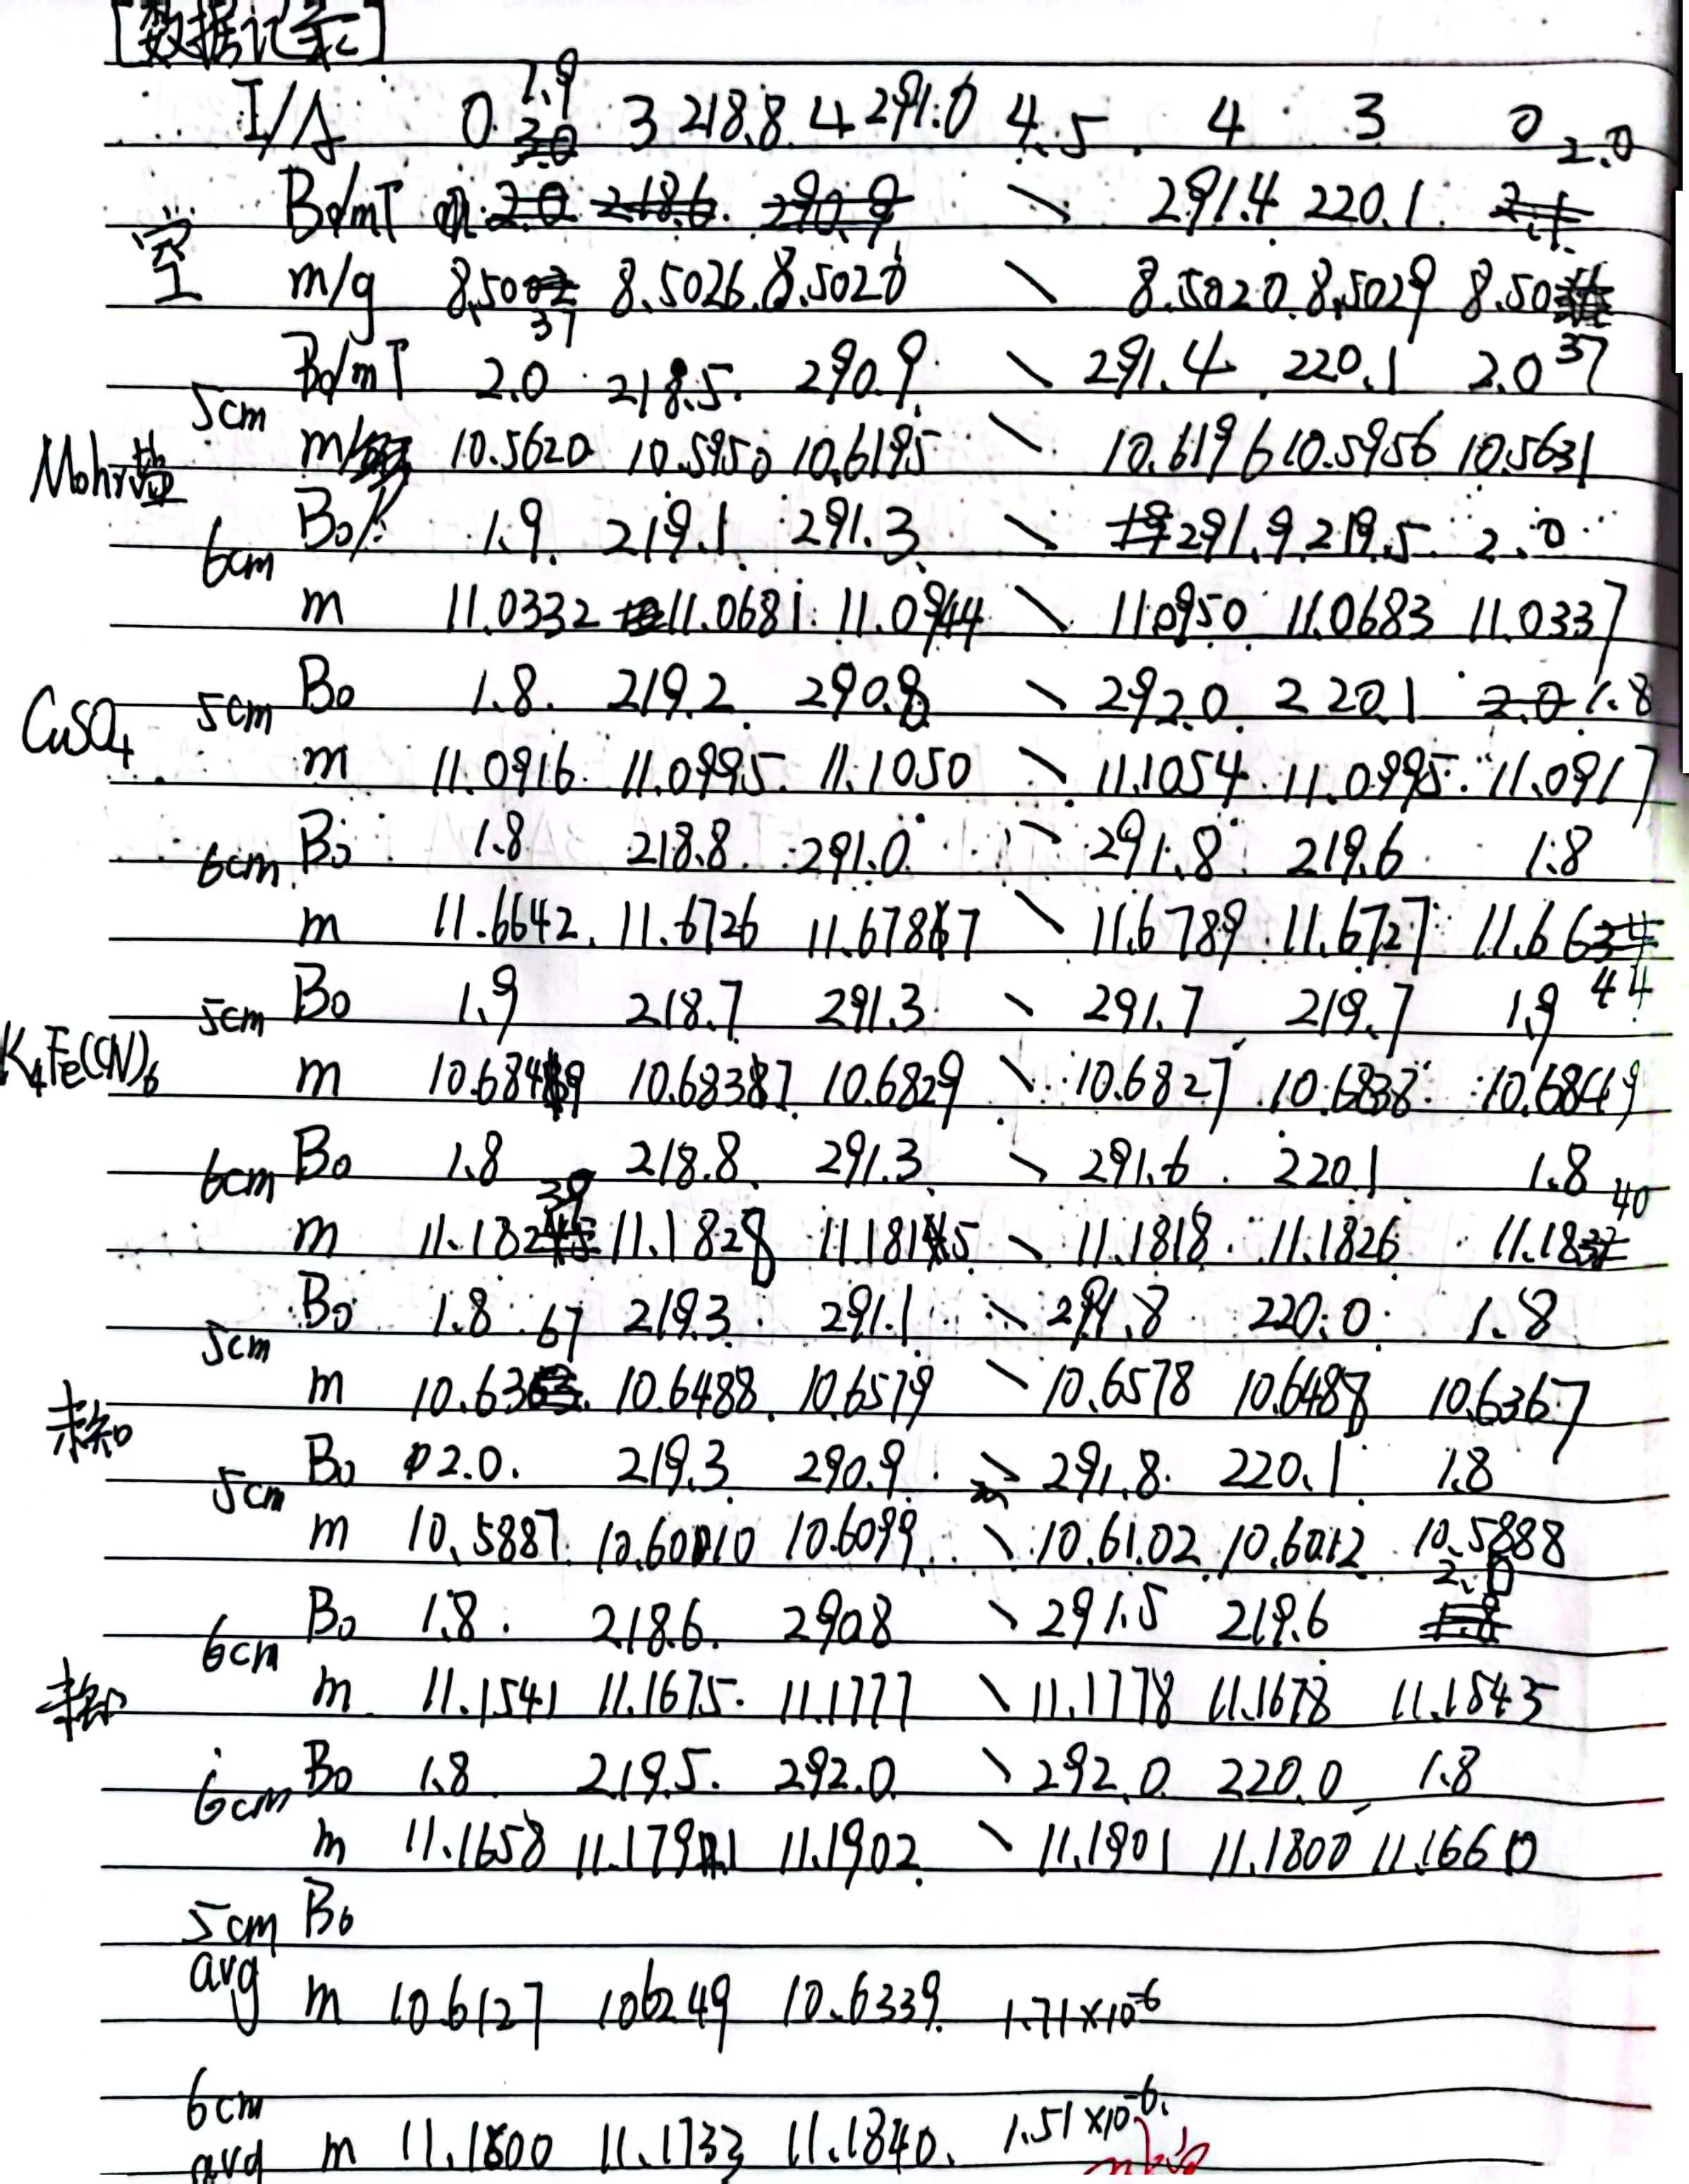 [数据记录]
I/A 0 1.9 3 218.8 4 291.0 4.5 4 3 0 2.0
空 B₀/mT 291.4 220.1
m/g 8.5037 8.5026 8.5020 \ 8.5020 8.5029 8.5037
Mohr盐 5cm B₀/mT 2.0 218.5 290.9 \ 291.4 220.1 2.0
m/ 10.5620 10.5950 10.6195 \ 10.6196 10.5956 10.5631
6cm B₀/ 1.9 219.1 291.3 \ 291.9 219.5 2.0
m 11.0332 11.0681 11.0944 \ 11.0950 11.0683 11.0337
CuSO₄ 5cm B₀ 1.8 219.2 290.8 \ 292.0 220.1 1.8
m 11.0916 11.0995 11.1050 \ 11.1054 11.0995 11.0917
6cm B₀ 1.8 218.8 291.0 \ 291.8 219.6 1.8
m 11.6642 11.6726 11.6787 \ 11.6789 11.6727 11.6644
K₄Fe(CN)₆ 5cm B₀ 1.9 218.7 291.3 \ 291.7 219.7 1.9
m 10.6849 10.6837 10.6829 \ 10.6827 10.6838 10.6849
6cm B₀ 1.8 218.8 291.3 \ 291.6 220.1 1.8
m 11.1839 11.1828 11.1815 \ 11.1818 11.1826 11.1840
未知 5cm B₀ 1.8 219.3 291.1 \ 291.8 220.0 1.8
m 10.6367 10.6488 10.6579 \ 10.6578 10.6487 10.6367
5cm B₀ 2.0 219.3 290.9 \ 291.8 220.1 1.8
m 10.5887 10.6010 10.6099 \ 10.6102 10.6012 10.5888
未知 6cm B₀ 1.8 218.6 290.8 \ 291.5 219.6 2.0
m 11.1541 11.1675 11.1777 \ 11.1778 11.1678 11.1543
6cm B₀ 1.8 219.5 292.0 \ 292.0 220.0 1.8
m 11.1658 11.1791 11.1902 \ 11.1901 11.1800 11.1660
5cm avg B₀
m 10.6127 10.6249 10.6339 1.71×10⁻⁶
6cm avg m 11.1600 11.1733 11.1840 1.51×10⁻⁶